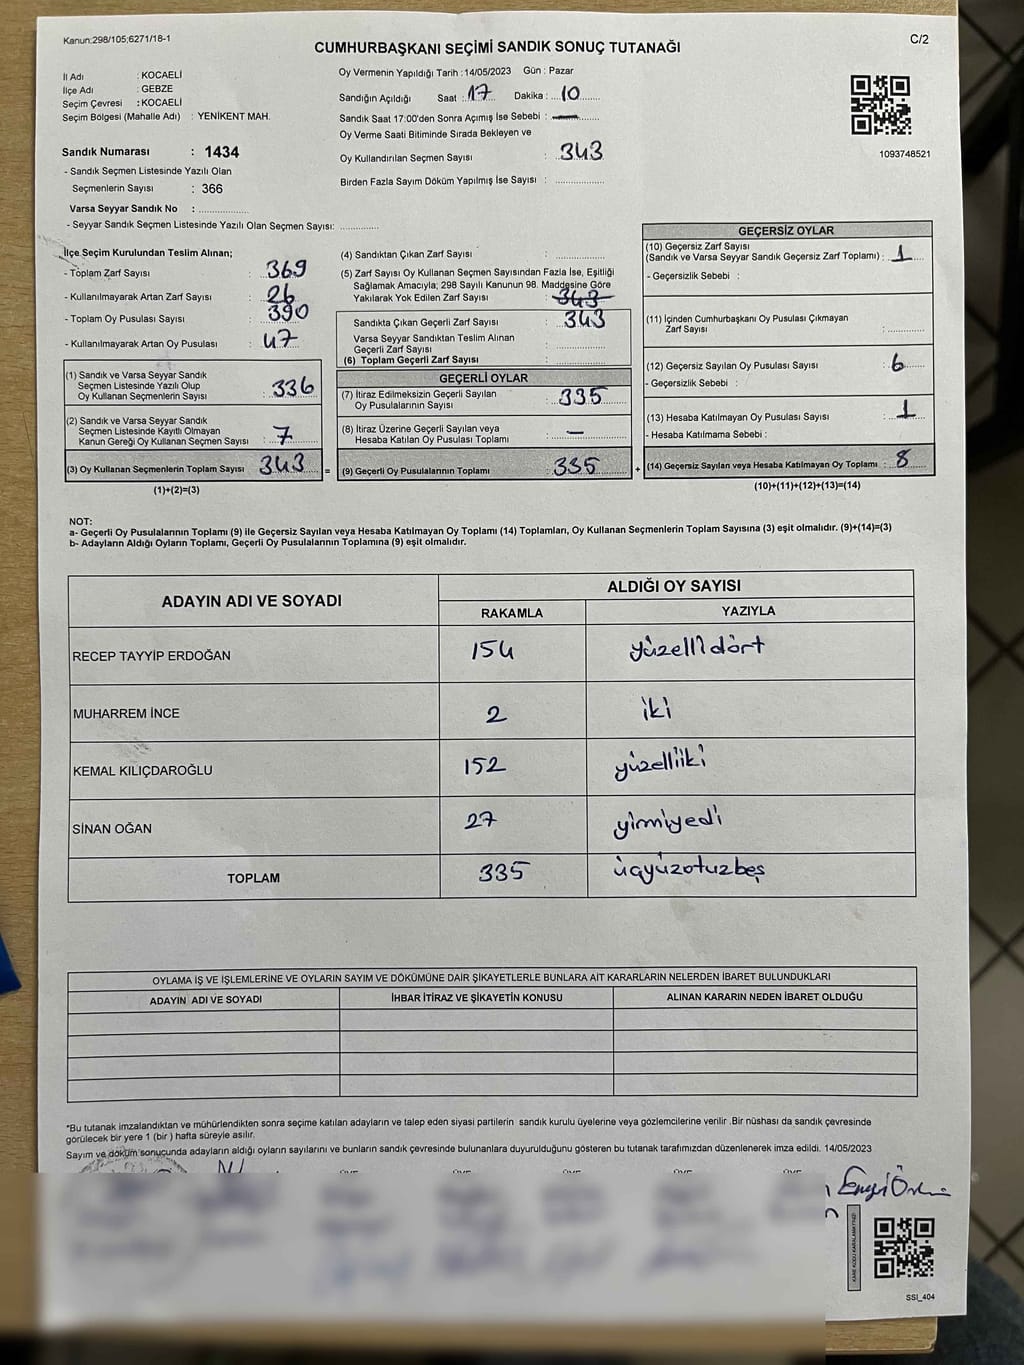 Kanun:298/105;6271/18-1
C/2
CUMHURBAŞKANI SEÇİMİ SANDIK SONUÇ TUTANAĞI
İl Adı : KOCAELİ
İlçe Adı : GEBZE
Seçim Çevresi : KOCAELİ
Seçim Bölgesi (Mahalle Adı) : YENİKENT MAH.
Sandık Numarası : 1434
- Sandık Seçmen Listesinde Yazılı Olan
Seçmenlerin Sayısı : 366
Varsa Seyyar Sandık No : ................
- Seyyar Sandık Seçmen Listesinde Yazılı Olan Seçmen Sayısı: ............
Oy Vermenin Yapıldığı Tarih :14/05/2023 Gün : Pazar
Sandığın Açıldığı Saat : 17 Dakika : 10
Sandık Saat 17:00'den Sonra Açımış İse Sebebi : —
Oy Verme Saati Bitiminde Sırada Bekleyen ve
Oy Kullandırılan Seçmen Sayısı : 343
Birden Fazla Sayım Döküm Yapılmış İse Sayısı : ................
1093748521
İlçe Seçim Kurulundan Teslim Alınan;
- Toplam Zarf Sayısı : 369
- Kullanılmayarak Artan Zarf Sayısı : 26
- Toplam Oy Pusulası Sayısı : 390
- Kullanılmayarak Artan Oy Pusulası : 47
(1) Sandık ve Varsa Seyyar Sandık
Seçmen Listesinde Yazılı Olup
Oy Kullanan Seçmenlerin Sayısı : 336
(2) Sandık ve Varsa Seyyar Sandık
Seçmen Listesinde Kayıtlı Olmayan
Kanun Gereği Oy Kullanan Seçmen Sayısı : 7
(3) Oy Kullanan Seçmenlerin Toplam Sayısı : 343 =
(1)+(2)=(3)
(4) Sandıktan Çıkan Zarf Sayısı : ................
(5) Zarf Sayısı Oy Kullanan Seçmen Sayısından Fazla İse, Eşitliği
Sağlamak Amacıyla; 298 Sayılı Kanunun 98. Maddesine Göre
Yakılarak Yok Edilen Zarf Sayısı : 343
Sandıkta Çıkan Geçerli Zarf Sayısı : 343
Varsa Seyyar Sandıktan Teslim Alınan
Geçerli Zarf Sayısı : ................
(6) Toplam Geçerli Zarf Sayısı : ................
GEÇERLİ OYLAR
(7) İtiraz Edilmeksizin Geçerli Sayılan
Oy Pusulalarının Sayısı : 335
(8) İtiraz Üzerine Geçerli Sayılan veya
Hesaba Katılan Oy Pusulası Toplamı : —
(9) Geçerli Oy Pusulalarının Toplamı : 335 +
GEÇERSİZ OYLAR
(10) Geçersiz Zarf Sayısı
(Sandık ve Varsa Seyyar Sandık Geçersiz Zarf Toplamı) : 1
- Geçersizlik Sebebi :
(11) İçinden Cumhurbaşkanı Oy Pusulası Çıkmayan
Zarf Sayısı : ............
(12) Geçersiz Sayılan Oy Pusulası Sayısı : 6
- Geçersizlik Sebebi :
(13) Hesaba Katılmayan Oy Pusulası Sayısı : 1
- Hesaba Katılmama Sebebi :
(14) Geçersiz Sayılan veya Hesaba Katılmayan Oy Toplamı : 8
(10)+(11)+(12)+(13)=(14)
NOT:
a- Geçerli Oy Pusulalarının Toplamı (9) ile Geçersiz Sayılan veya Hesaba Katılmayan Oy Toplamı (14) Toplamları, Oy Kullanan Seçmenlerin Toplam Sayısına (3) eşit olmalıdır. (9)+(14)=(3)
b- Adayların Aldığı Oyların Toplamı, Geçerli Oy Pusulalarının Toplamına (9) eşit olmalıdır.
ADAYIN ADI VE SOYADI ALDIĞI OY SAYISI
RAKAMLA YAZIYLA
RECEP TAYYİP ERDOĞAN 154 yüzellidört
MUHARREM İNCE 2 iki
KEMAL KILIÇDAROĞLU 152 yüzelliiki
SİNAN OĞAN 27 yirmiyedi
TOPLAM 335 üçyüzotuzbeş
OYLAMA İŞ VE İŞLEMLERİNE VE OYLARIN SAYIM VE DÖKÜMÜNE DAİR ŞİKAYETLERLE BUNLARA AİT KARARLARIN NELERDEN İBARET BULUNDUKLARI
ADAYIN ADI VE SOYADI İHBAR İTİRAZ VE ŞİKAYETİN KONUSU ALINAN KARARIN NEDEN İBARET OLDUĞU
*Bu tutanak imzalandıktan ve mühürlendikten sonra seçime katılan adayların ve talep eden siyasi partilerin sandık kurulu üyelerine veya gözlemcilerine verilir .Bir nüshası da sandık çevresinde
görülecek bir yere 1 (bir ) hafta süreyle asılır.
Sayım ve döküm sonucunda adayların aldığı oyların sayılarını ve bunların sandık çevresinde bulunanlara duyurulduğunu gösteren bu tutanak tarafımızdan düzenlenerek imza edildi. 14/05/2023
SSI_404